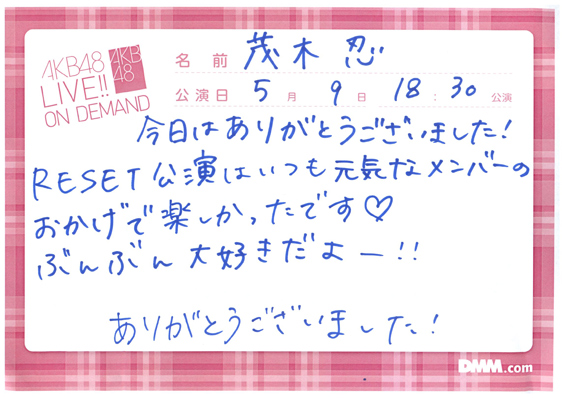 AKB48
LIVE!!
ON DEMAND
AKB
48
名前 茂木忍
公演日 5月 9日 18:30 公演
今日はありがとうございました!
RESET公演はいつも元気なメンバーの
おかげで楽しかったです♡
ぶんぶん大好きだよー!!
ありがとうございました!
DMM.com